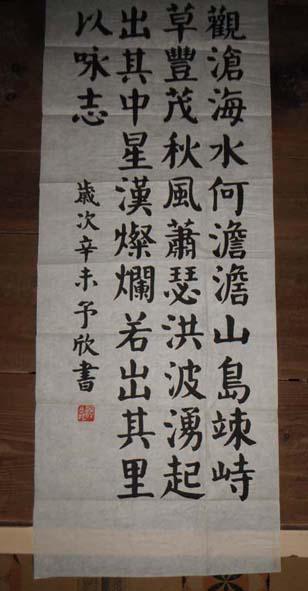 觀滄海水何澹澹山島竦峙
草豐茂秋風蕭瑟洪波湧起
出其中星漢燦爛若出其里
以咏志
歲次辛未予欣書